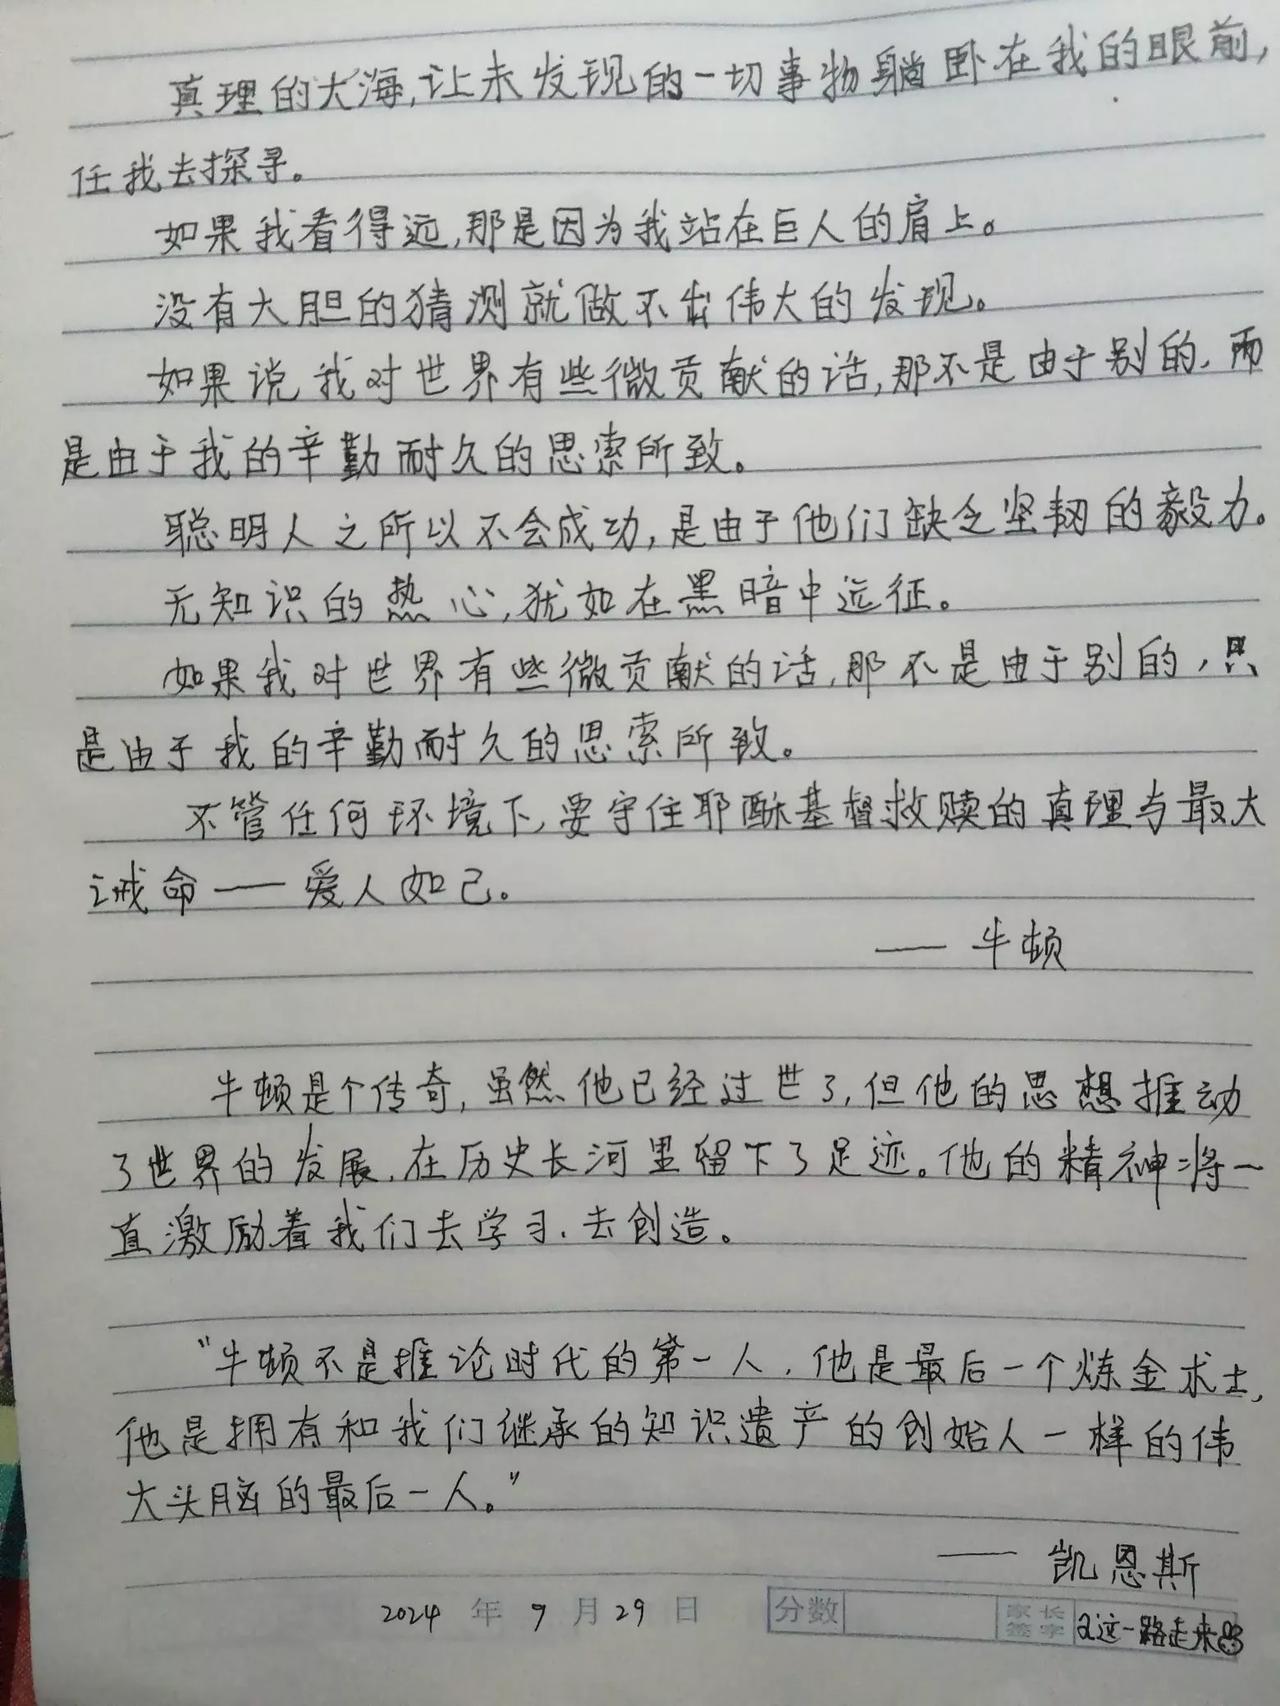 真理的大海,让未发现的一切事物躺卧在我的眼前,
任我去探寻。
如果我看得远,那是因为我站在巨人的肩上。
没有大胆的猜测就做不出伟大的发现。
如果说我对世界有些微贡献的话,那不是由于别的,而
是由于我的辛勤耐久的思索所致。
聪明人之所以不会成功,是由于他们缺乏坚韧的毅力。
无知识的热心,犹如在黑暗中远征。
如果我对世界有些微贡献的话,那不是由于别的,只
是由于我的辛勤耐久的思索所致。
不管任何环境下,要守住耶酥基督救赎的真理与最大
诫命——爱人如己。
——牛顿
牛顿是个传奇,虽然他已经过世了,但他的思想推动
了世界的发展,在历史长河里留下了足迹。他的精神将一
直激励着我们去学习,去创造。
“牛顿不是推论时代的第一人,他是最后一个炼金术士,
他是拥有和我们继承的知识遗产的创始人一样的伟
大头脑的最后一人。”
——凯恩斯
2024 年 9 月 29 日 分数 家长签字 这一路走来